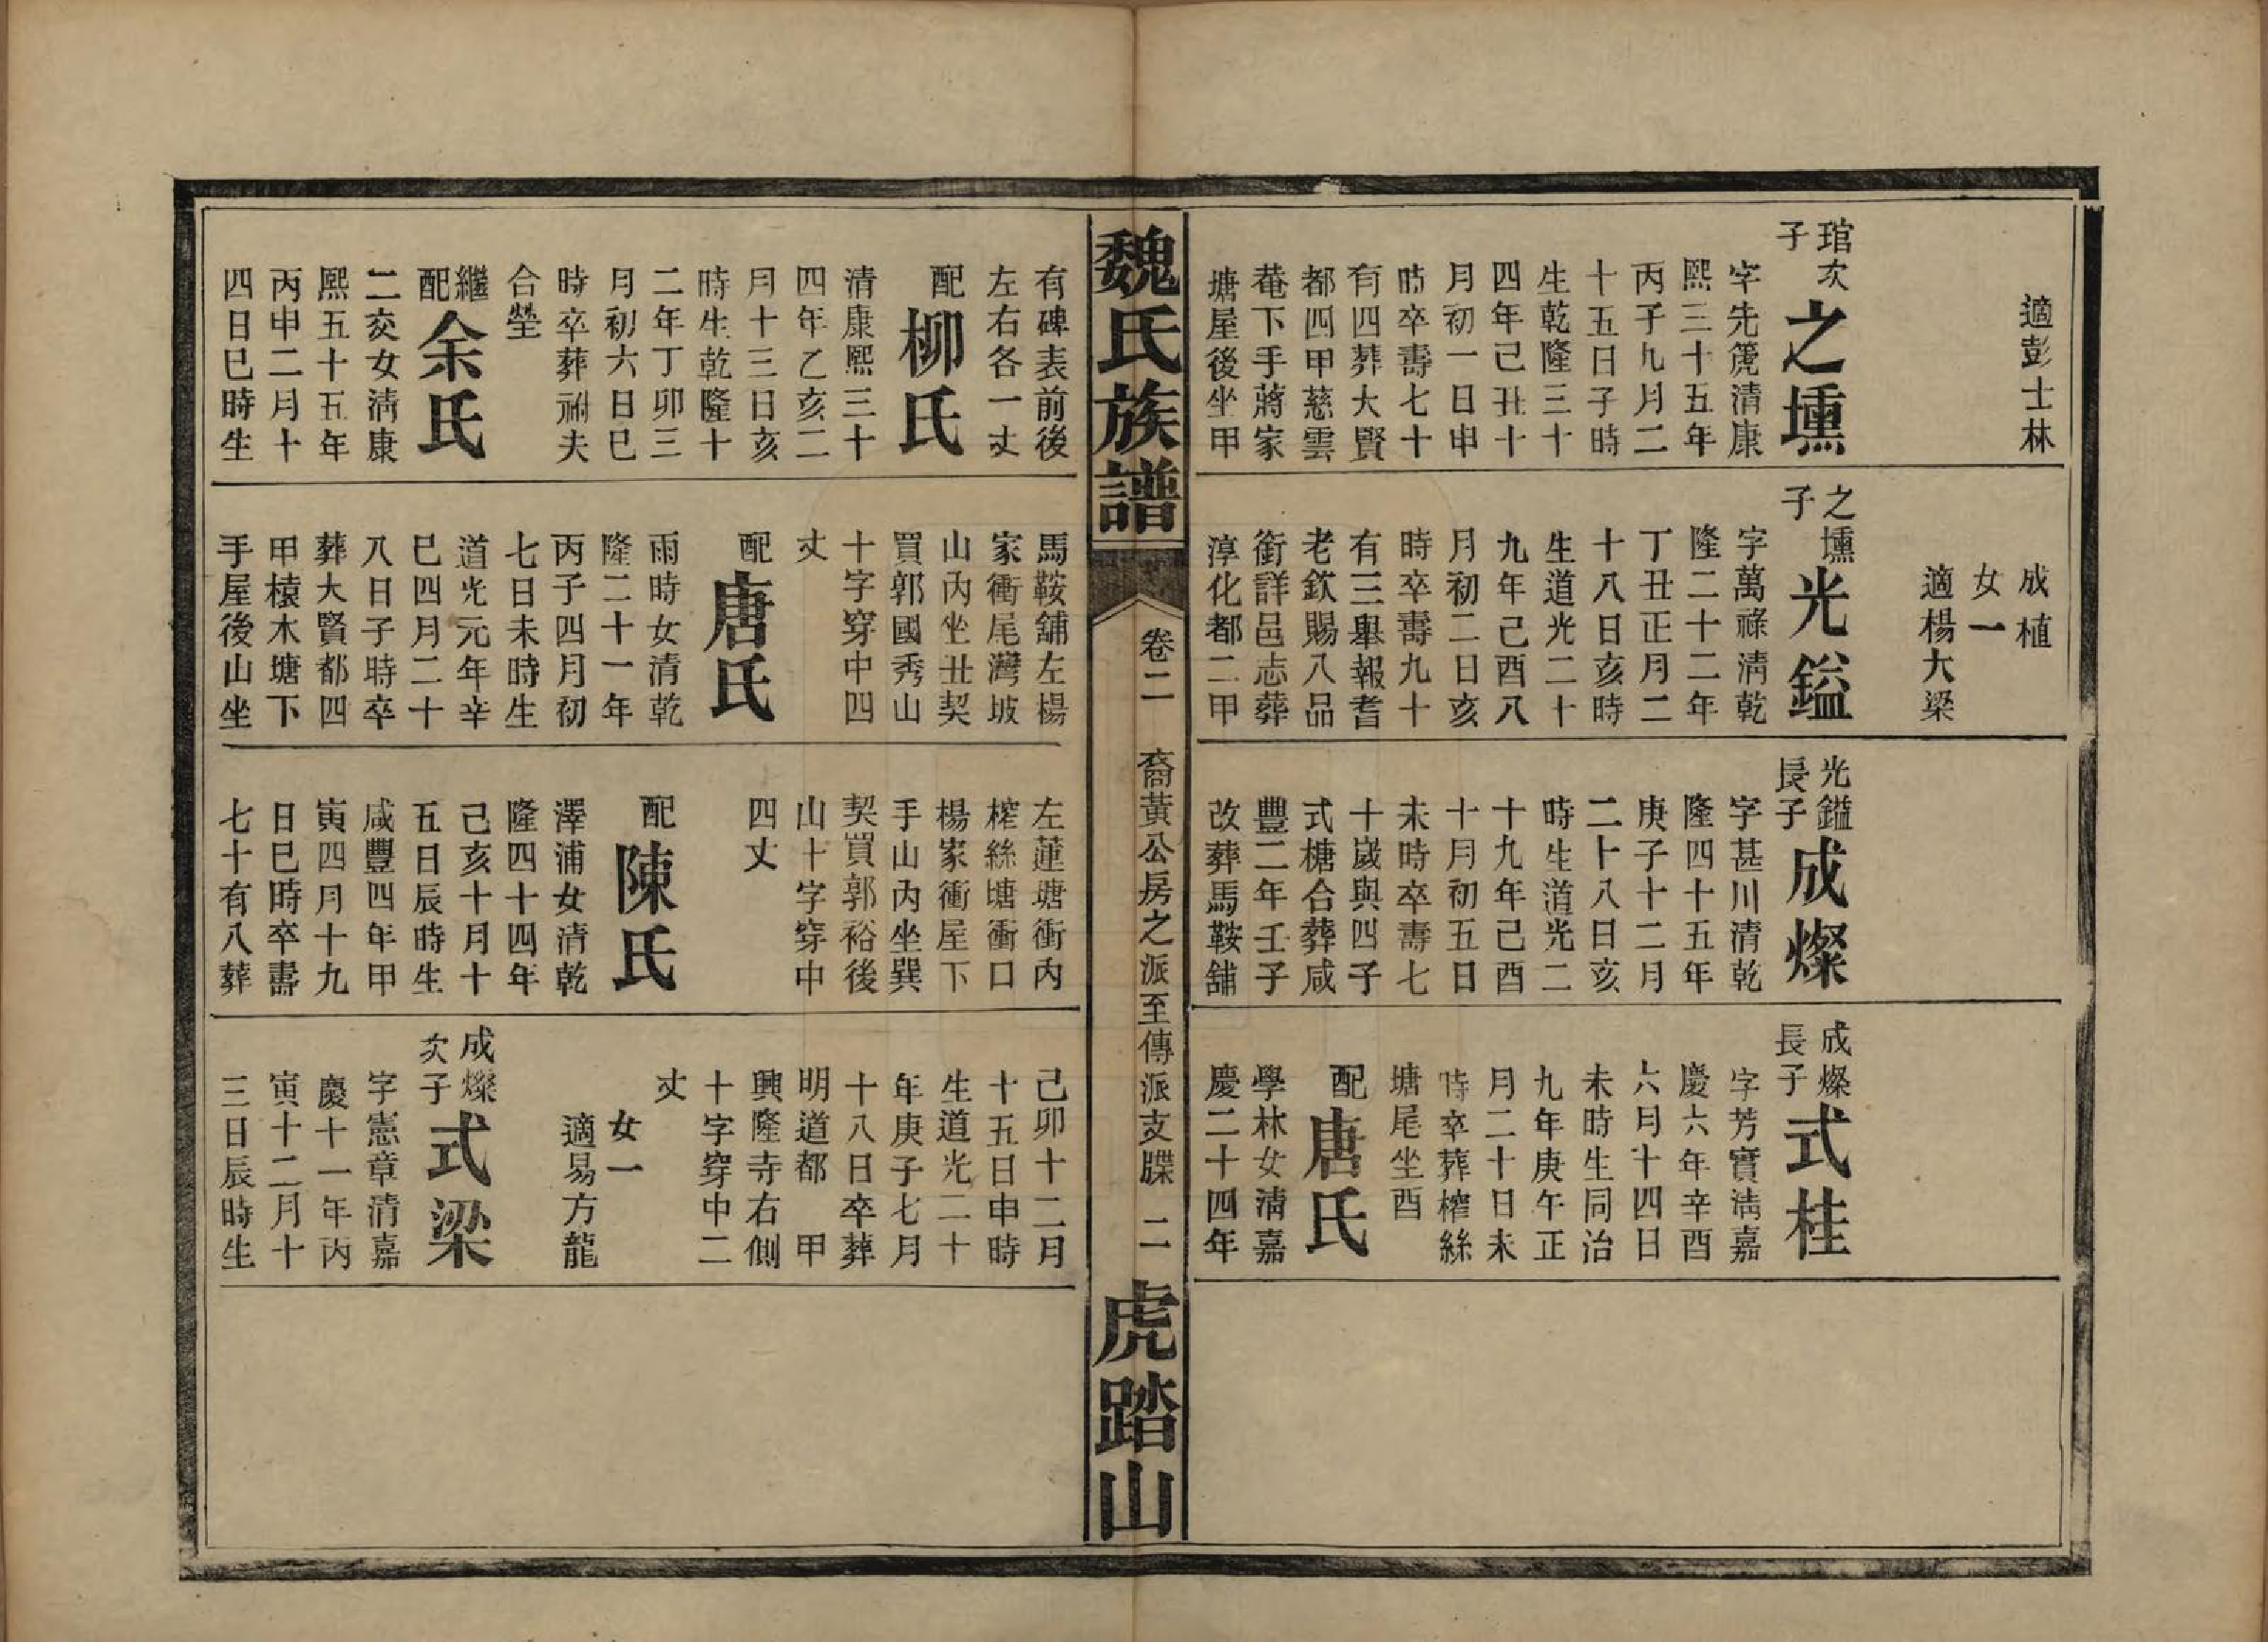 適彭士林
琯次子
之壎
字先箎清康
熙三十五年
丙子九月二
十五日子時
生乾隆三十
四年己丑十
月初一日申
時卒壽七十
有四葬大賢
都四甲慈雲
菴下手蔣家
塘屋後坐甲
成植
女一
適楊大梁
之壎子
光鎰
字萬祿清乾
隆二十二年
丁丑正月二
十八日亥時
生道光二十
九年己酉八
月初二日亥
時卒壽九十
有三舉報耆
老欽賜八品
銜詳邑志葬
淳化都二甲
光鎰長子
成燦
字甚川清乾
隆四十五年
庚子十二月
二十八日亥
時生道光二
十九年己酉
十月初五日
未時卒壽七
十歲與四子
式榶合葬咸
豐二年壬子
改葬馬鞍舖
成燦長子
式桂
字芳實清嘉
慶六年辛酉
六月十四日
未時生同治
九年庚午正
月二十日未
時卒葬榨絲
塘尾坐酉
配
唐氏
學林女清嘉
慶二十四年
魏氏族譜
卷二
裔黃公房之派至傳派支牒
二
虎踏山
有碑表前後
左右各一丈
配
柳氏
清康熙三十
四年乙亥二
月十三日亥
時生乾隆十
二年丁卯三
月初六日巳
時卒葬祔夫
合塋
繼配
余氏
二交女清康
熙五十五年
丙申二月十
四日巳時生
馬鞍舖左楊
家衝尾灣坡
山內坐丑契
買郭國秀山
十字穿中四
丈
配
唐氏
雨時女清乾
隆二十一年
丙子四月初
七日未時生
道光元年辛
巳四月二十
八日子時卒
葬大賢都四
甲檺木塘下
手屋後山坐
左蓮塘衝內
榨絲塘衝口
楊家衝屋下
手山內坐巽
契買郭裕後
山十字穿中
四丈
配
陳氏
澤浦女清乾
隆四十四年
己亥十月十
五日辰時生
咸豐四年甲
寅四月十九
日巳時卒壽
七十有八葬
己卯十二月
十五日申時
生道光二十
年庚子七月
十八日卒葬
明道都　甲
興隆寺右側
十字穿中二
丈
女一
適易方龍
成燦次子
式梁
字憲章清嘉
慶十一年丙
寅十二月十
三日辰時生